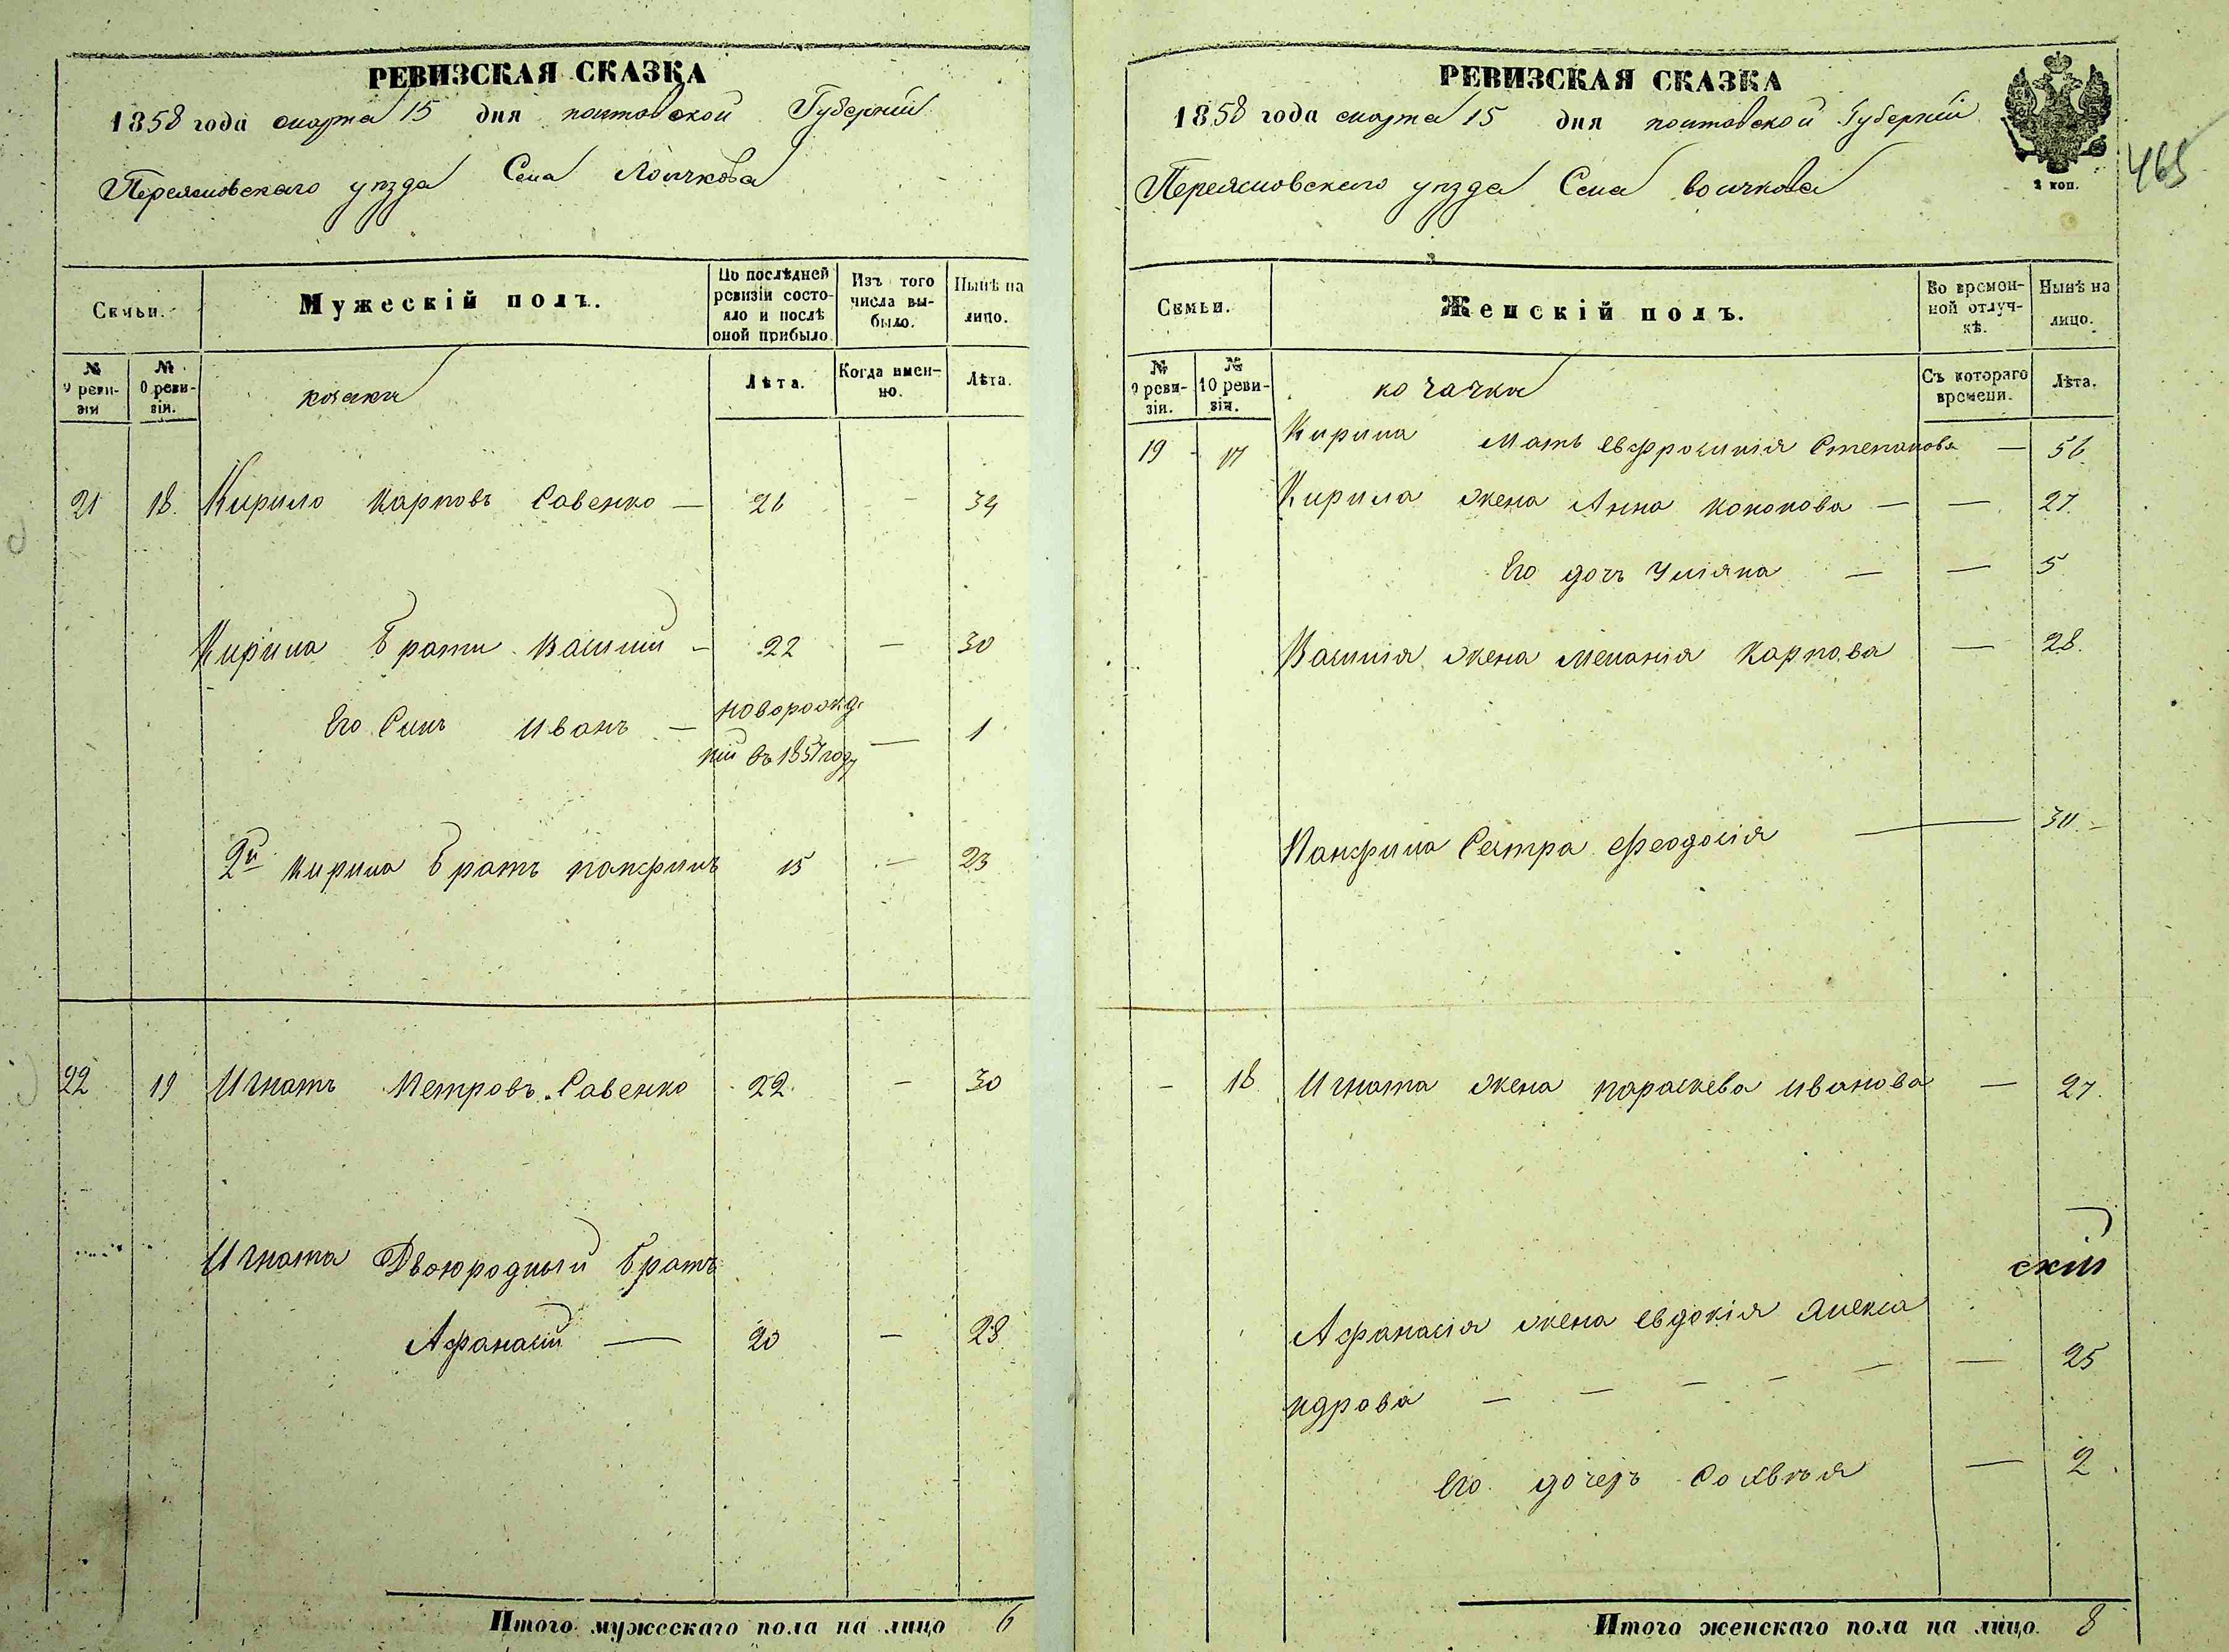 РЕВИЗСКАЯ СКАЗКА
1858 года марта 15 дня полтавской Губерніи
Переясловскаго уѣзда Села
Семьи.
Мужескій полъ.
По послѣдней ревизіи состояло и послѣ оной прибыло.
Изъ того числа выбыло.
Нынѣ на лицо.
№ 9 ревизіи
№ 10 ревизіи.
козаки
Лѣта.
Когда именно.
Лѣта.
21 18. Кирило Карповъ Савенко — 26 — 34
Кирила братъ Василий — 22 — 30
Его Синъ Иванъ — новорожде
ний въ 1857 году — 1
2й Кирила братъ панфилъ 15 — 23
22 19 Игнатъ Петровъ Савенко 22 — 30
Игната Двоюродный братъ
Афанасій — 20 — 28
Итого мужескаго пола на лицо 6
РЕВИЗСКАЯ СКАЗКА
1858 года марта 15 дня полтавской Губерніи
2 коп.
465
Переясловскаго уѣзда Села Волчкова
Семьи.
Женскій полъ.
Во временной отлучкѣ.
Нынѣ на лицо.
№ 9 ревизіи.
№ 10 ревизіи.
козачки
Съ котораго времени.
Лѣта.
19 17 Кирила Мать Евфросинія Степанова — 56
Кирила жена Анна кононова — — 27
Его дочъ Уліяна — — 5
Василія жена Меланія Карпова — 28.
Панфила Сестра Феодосія — 30
— 18 Игната жена параскева иванова — 27.
скій
Афанасія жена Евдокія Алекса
ндрова — — — — — — 25
Его дочеръ Соломія — 2
Итого женскаго пола на лицо. 8